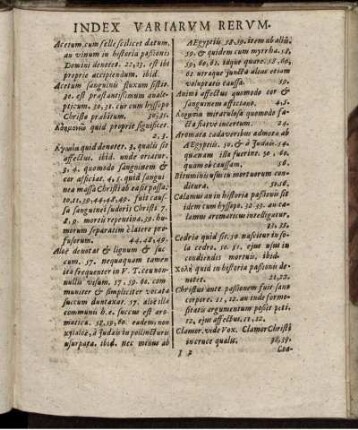 INDEX VARIARUM RERUM.
Acetum cum felle scilicet datum,
an vinum in historia pasionis
Domini denotet. 22,23. est ibi
proprie accipiendum. ibid.
Acetum sanguinis fluxum sistit.
30. est præstantissimum
pticum. 30,31. cur cum hyssopo
Christo præbitum. 30,31.
quid proprie significet.
2. 3.
quid denotet. 3. qualis sit
affectus. ibid. unde oriatur.
3. 4. quomodo sanguinem &
cor afficiat. 4. 5. quid sangui
nea massa Christi ab ea sit passa.
fuit cau-
sa sanguinei sudoris Christi 7.
8. 9. mortis repentinæ, 39. hu-
morum separatim è latere pro-
fusorum. 44,48,49.
Aloë denotat & lignum & suc
cum. 57. nequaquam tamen
ita frequenter in V. T. ceu non-
nullis visum. 57. 59. 60. com-
muniter & simpliciter vocata
succum duntaxat. 57. aloë illa
communis h.e. succus est aro-
matica. 58,59,60. eadem non
à Judæis in pollinctura
usurpata. ibid. nec minus ab
Ægyptiis 58. 59. item ab aliis,
59. & quidem cum myrrha. 58,
59, 60, 61. idque quare. 58, 60,
61. utraque juncta alias etiam
voluptatis causa. 59.
Animi affectus quomodo cor &
sanguinem afficiant. 4,5.
mirabilesa quomodo fa-
cta fuerit incertum. 24.
Aromata cadaveribus admota ab
Ægyptiis. 50, & à Judæis. 54.
quænam illa fuerint. 50, 60,
quam ob causam. 56.
Bituminis usus in mortuorum con-
ditura. 51.56.
Calamus an in historia pasionis sit
idem cum hyssopo. 32. 33. an ca-
lamus aromaticus intelligatur.
Cedria quid sit. 50 nascitur in so-
la cedro. 50. 51. ejus usus in
condiendis mortuis. ibid.
Χολὴ quid in historia pasionis de-
notet. 21,22.
Christus ante pasionem fuit sano
corpore. 11, 12. an inde formo-
sitatis argumentum possit peti.
12, ejus affectus. 11. 12.
Clamor. vide Vox. Clamor Christi
in cruce qualis. 38,39.
I 2